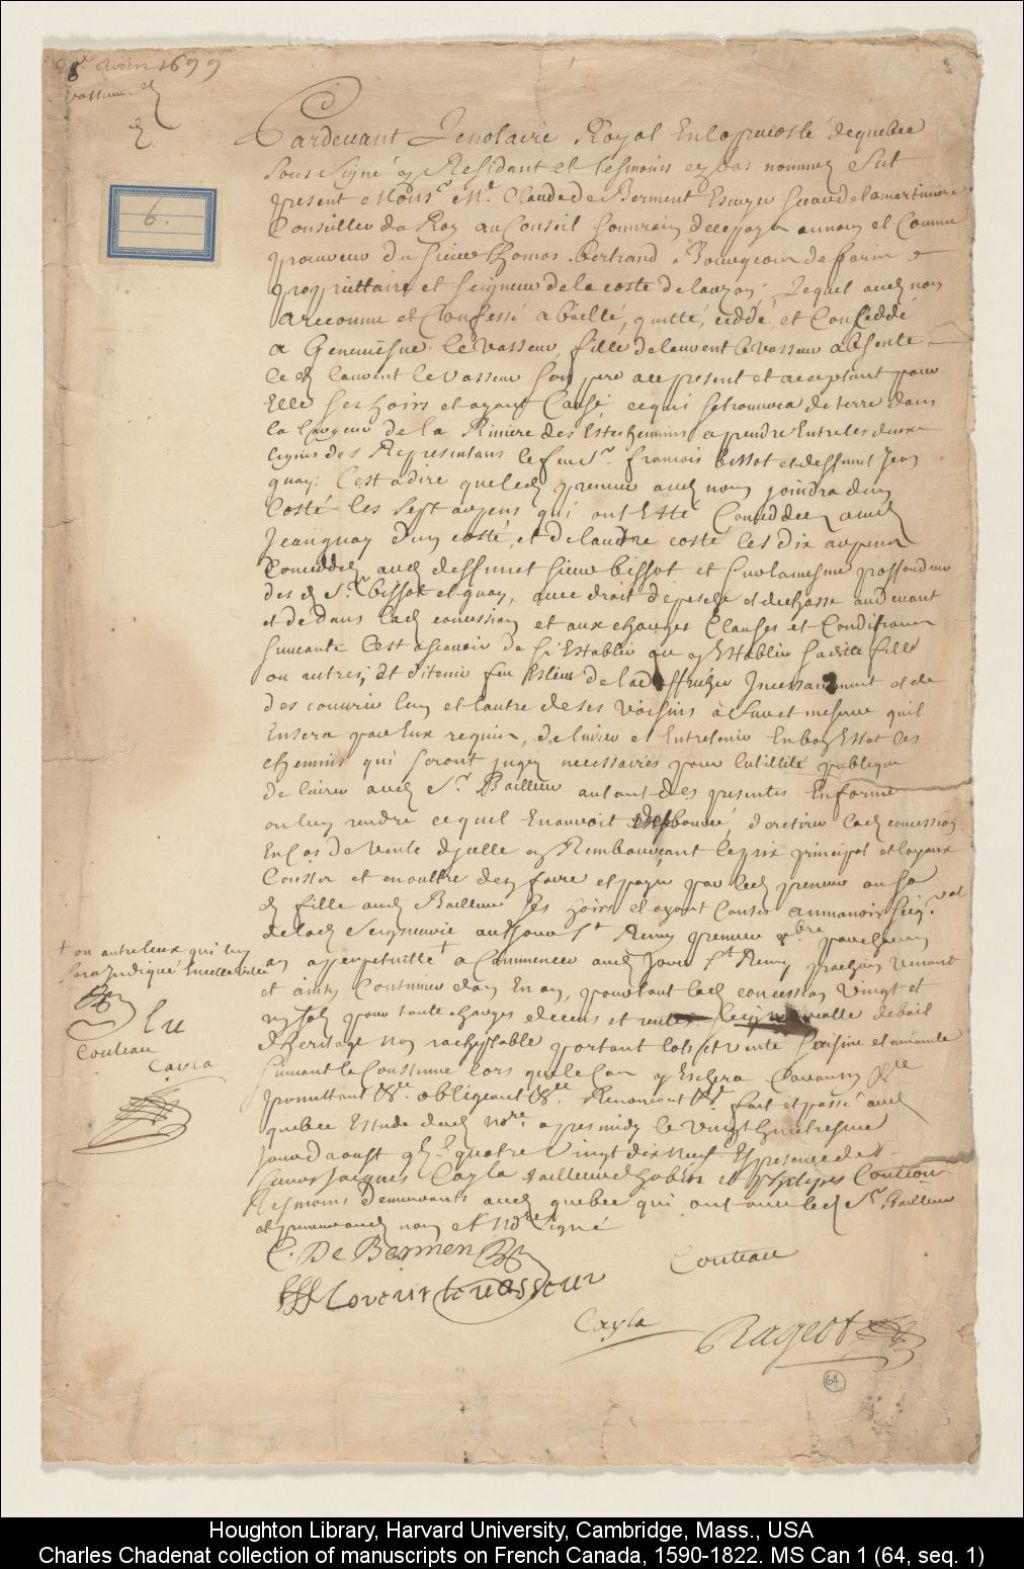 Avrin 1699
6.
Pardevant Lenotaire Royal En la prevosté de quebec
Sous Signé y Residant et tesmoins cy bas nommez fut
present Mons.r M.e Claude de Berment Escuyer Sieur de la martiniere
Conseiller du Roy au Conseil Souverain de ce pays au nom et Comme
procureur du Sieur Thomas bertrand Bourgeois de paris
proprietaire et Seigneur de la coste de lauzon; Lequel aud nom
a reconnu et Confessé a baillé, quitté, ceddé, et Conceddé
a Genneviesve le Vasseur fille de laurent le Vasseur absente
led laurent le Vasseur son pere a ce present et acceptant pour
Elle ses hoirs et ayant Cause ce qui se trouvera de terre dans
la largeur de la Riviere des Estechemins a prendre Entre les deux
lignes des Representans le feu S.r francois bissot et deffunct Jean
guay; C'est a dire que led preneur aud nom joindra dun
Costé les Sept arpens qui ont Esté Conceddez aud
Jean guay d'un costé, et de lautre costé les dix arpens
Conceddez aud deffunct Sieur bissot et sur la mesme proffondeur
des d S.r bissot et guay, avec droit de pesche et de chasse au devant
et dedans lad concession et aux charges Clauses et Conditions
suivante C'est a scavoir de s'i Establir ou y Establir sadite fille
ou autres; et d'i tenir feu et lieu de la deffricher Incessamment et de
descouvrir lun et lautre de ses voisins à fur et mesure quil
En sera par Eux requis, de livrer et Entretenir En bon Estat les
chemins qui seront jugez necessaires pour lutillité publique
de livrer aud S.r Bailleur autant des presentes En forme
ou luy rendre ce quil En auroit desboursé, de retirer lad concession
En Cas de Vente d'jcelle en Remboursant le prix principal et loyaux
Cousts et en oultre den faire et payer par led preneur ou sa
d fille aud Bailleur ses hoirs et ayant Causes au manoir Seig.rial
de lad Seigneurie au Jour S.t Remy premier 8.bre par chacun
an a perpetuitté + a Commencer aud Jour S.t Remy prochain Venant
et ainsy Continuer dan En an, pour tout lad concession Vingt et
un sols pour toute charges de cens et rentes seigneurialle de bail
d'heritage non racheptable portant lots et vente saisine et amande
suivant la Coustume lors que le Cas y Eschera Car ainsy &.e
promettant &.e obligeant &.e Renoncant &.e fait et passé aud
quebec Estude dud no.re apres midy le Vingt huictiesme
jour d'aoust g.l quatre Vingt dix neuf En presence des
Sieurs Jacques Cayla tailleur d'habits et Couteau
Tesmoins demeurants aud quebec qui ont avec led S.r Bailleur
et preneur aud nom et No.re Signé
+ ou autre lieux qui luy
sera Indiqué En cette ville
Lu
Couteau
Cayla
C. De Bermen
Lorent levasseur
Couteau
Cayla
Rageot
64
Houghton Library, Harvard University, Cambridge, Mass., USA
Charles Chadenat collection of manuscripts on French Canada, 1590-1822. MS Can 1 (64, seq. 1)